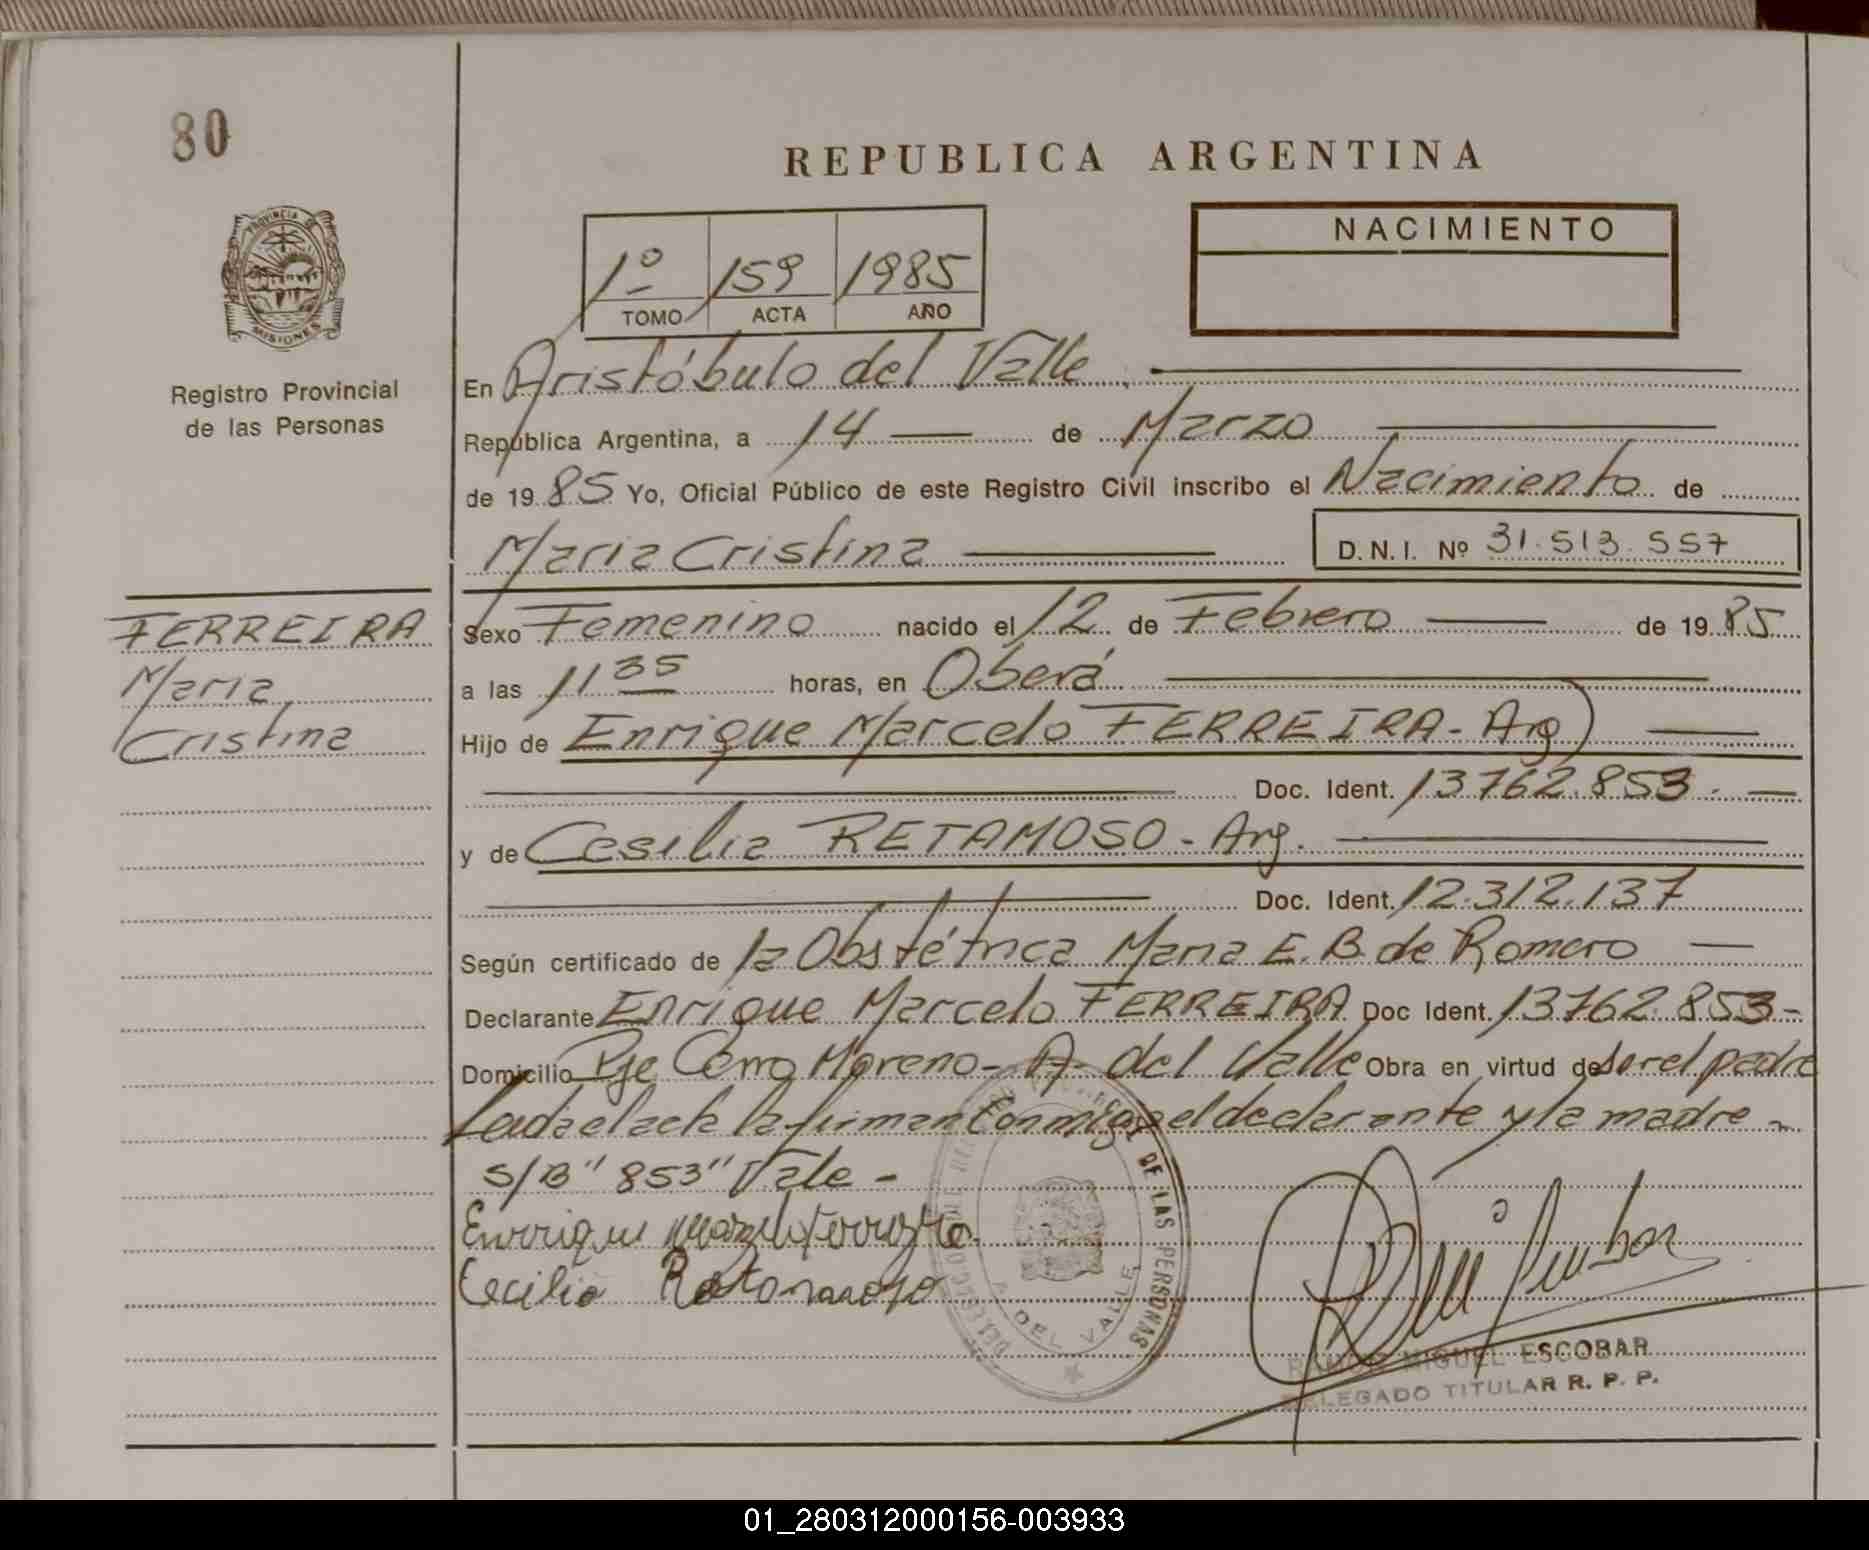 80
REPUBLICA ARGENTINA
PROVINCIA DE
MISIONES
Registro Provincial
de las Personas
NACIMIENTO
1º 159 1985
TOMO ACTA AÑO
En Aristóbulo del Valle
República Argentina, a 14 de Marzo
de 1985 Yo, Oficial Público de este Registro Civil inscribo el Nacimiento de
Maria Cristina D.N.I. Nº 31.513.557
FERREIRA
Maria
Cristina
Sexo Femenino nacido el 12 de Febrero de 1985
a las 11 35 horas, en Oberá
Hijo de Enrique Marcelo FERREIRA - Arg)
Doc. Ident. 13762.853.
y de Cesilia RETAMOSO - Arg.
Doc. Ident. 12.312.137
Según certificado de la Obstétrica Maria E. B. de Romero
Declarante Enrique Marcelo FERREIRA Doc Ident. 13762.853-
Domicilio Pje Cerro Moreno - A. del Valle Obra en virtud de ser el padre
Leida el acta la firman conmigo el declarante y la madre -
S/B "853" Vale -
Cecilia Retamoso
DE LAS PERSONAS
A DEL VALLE
RAMON MIGUEL ESCOBAR
DELEGADO TITULAR R. P. P.
01_280312000156-003933